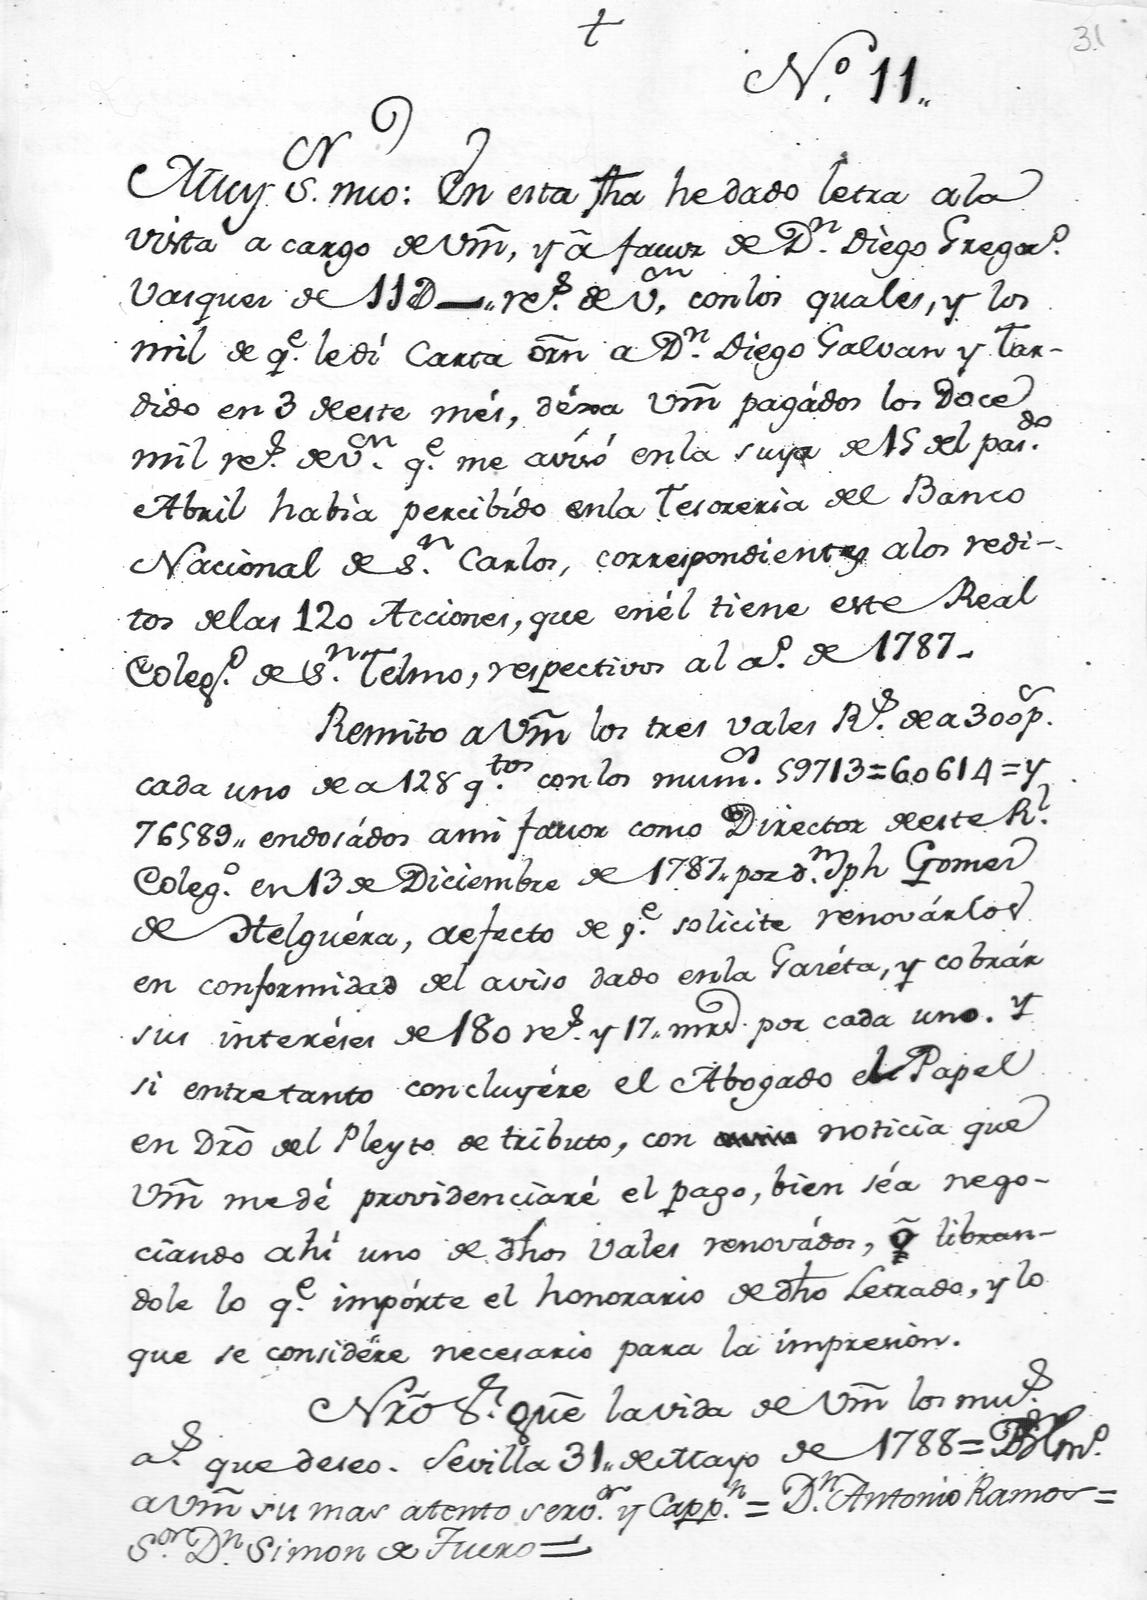 †
31
N.º 11,,
Muy S.r mio: En esta fha he dado letra ala
vista a cargo de Vm̃, y ã favor de D.n Diego Gregor.o
Vasques de 11D—,, re.s de v.on con los quales, y los
mil de q.e le dí Carta orñ a D.n Diego Galvan y Tar-
dido en 3 de este més, déxa Vm̃ pagádos los Doce
mil re.s de v.on q.e me avisó en la suya de 15 del pas.do
Abril habia percibído en la Tesoreria del Banco
Nacional de S.n Carlos, correspondientes a los redi-
tos de las 120 Acciones, que en él tiene este Real
Coleg.o de S.n Telmo, respectivos al a.o de 1787_
Remito a Vm̃ los tres vales R.s de a 300 p.s
cada uno de a 128 q.tos con los num̃.os 59713=60614=y
76589,, endosádos a mi favor como Director de este R.l
Coleg.o en 13 de Diciembre de 1787,, por d.n Jph Gomes
de Helguéra, a efecto de q.e solicite renovárlos
en conformidad del aviso dado en la Gazéta, y cobrár
sus interéses de 180 re.s y 17,, mrs. por cada uno. Y
si entretanto concluyére el Abogado el Papel
en Drõ del Pleyto de tributo, con noticia que
Vm̃ me dé providenciaré el pago, bien séa nego-
ciando ahí uno de dhos Vales renovádos, õ libran-
dole lo q.e impórte el honorario de dho Letrado, y lo
que se considére necesario para la impresion.
Nrõ S.r gũe la vida de Vm̃ los mu.s
a.s que deseo. Sevilla 31,, de Mayo de 1788= BLm.o
a Vm̃ su mas atento serv.or y Capp.n = D.n Antonio Ramos =
S.or D.n Simon de Fuero =